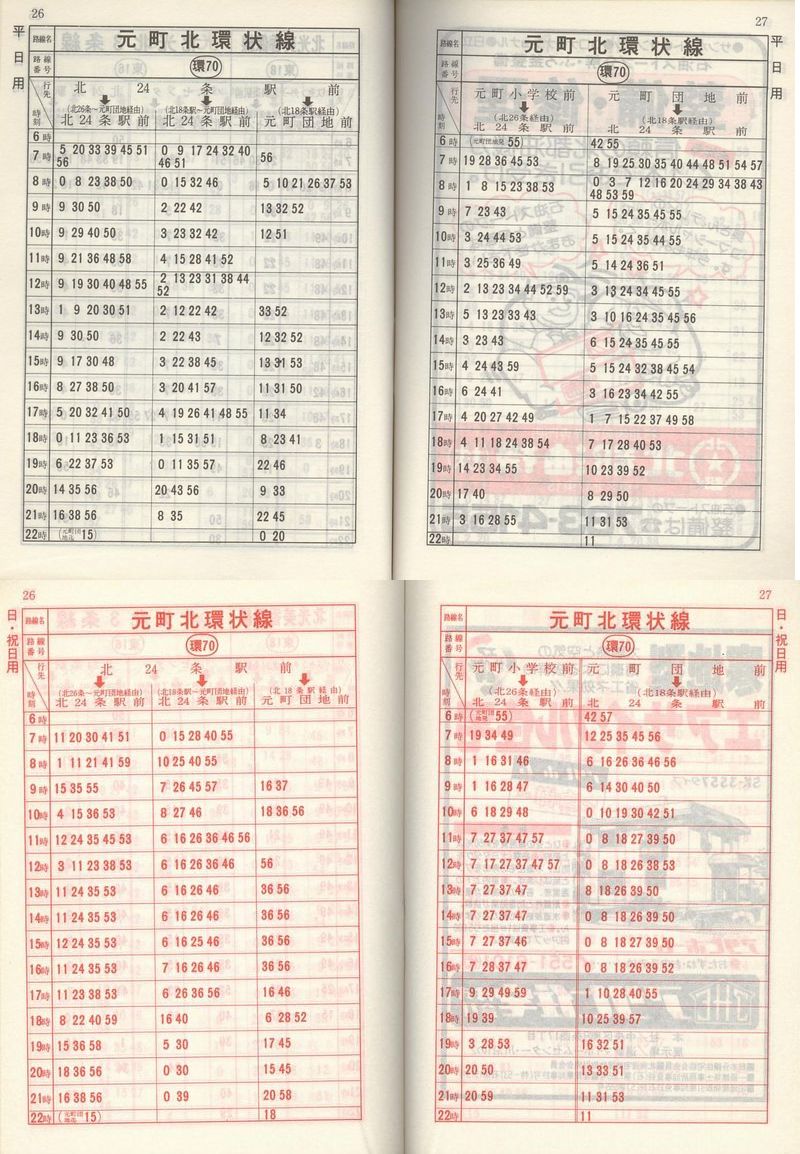 26
平日用
路線名 元町北環状線
路線番号 環70
行先 時刻 北24条駅前
(北26条〜元町団地経由) (北18条駅〜元町団地経由) (北18条駅経由)
北24条駅前 北24条駅前 元町団地前
6時
7時 5 20 33 39 45 51 56 0 9 17 24 32 40 46 51 56
8時 0 8 23 38 50 0 15 32 46 5 10 21 26 37 53
9時 9 30 50 2 22 42 13 32 52
10時 9 29 40 50 3 23 32 42 12 51
11時 9 21 36 48 58 4 15 28 41 52
12時 9 19 30 40 48 55 2 13 23 31 38 44 52
13時 1 9 20 30 51 2 12 22 42 33 52
14時 9 30 50 2 22 43 12 32 52
15時 9 17 30 48 3 22 38 45 13 31 53
16時 8 27 38 50 3 20 41 57 11 31 50
17時 5 20 32 41 50 4 19 26 41 48 55 11 34
18時 0 11 23 36 53 1 15 31 51 8 23 41
19時 6 22 37 53 0 11 35 57 22 46
20時 14 35 56 20 43 56 9 33
21時 16 38 56 8 35 22 45
22時 (元町団地迄15) 0 20
27
平日用
路線名 元町北環状線
路線番号 環70
行先 時刻 元町小学校前 元町団地前
(北26条経由) (北18条駅経由)
北24条駅前 北24条駅前
6時 (元町団地発55) 42 55
7時 19 28 36 45 53 8 19 25 30 35 40 44 48 51 54 57
8時 1 8 15 23 38 53 0 3 7 12 16 20 24 29 34 38 43 48 53 59
9時 7 23 43 5 15 24 35 45 55
10時 3 24 44 53 5 15 24 35 44 55
11時 3 25 36 49 5 14 24 36 51
12時 2 13 23 34 44 52 59 3 13 24 34 45 55
13時 5 13 23 33 43 3 10 16 24 35 45 56
14時 3 23 43 6 15 24 35 45 55
15時 4 24 43 59 5 15 24 32 38 45 54
16時 6 24 41 3 16 23 34 42 55
17時 4 20 27 42 49 1 7 15 22 37 49 58
18時 4 11 18 24 38 54 7 17 28 40 53
19時 14 23 34 55 10 23 39 52
20時 17 40 8 29 50
21時 3 16 28 55 11 31 53
22時 11
26
日・祝日用
路線名 元町北環状線
路線番号 環70
行先 時刻 北24条駅前
(北26条〜元町団地経由) (北18条駅〜元町団地経由) (北18条駅経由)
北24条駅前 北24条駅前 元町団地前
6時
7時 11 20 30 41 51 0 15 28 40 55
8時 1 11 21 41 59 10 25 40 55
9時 15 35 55 7 26 45 57 16 37
10時 4 15 36 53 8 27 46 18 36 56
11時 12 24 35 45 53 6 16 26 36 46 56
12時 3 11 23 38 53 6 16 26 36 46 56
13時 11 24 35 53 6 16 26 46 36 56
14時 11 24 35 53 6 16 26 46 36 56
15時 12 24 35 53 6 16 25 46 36 56
16時 11 24 35 53 7 16 26 46 36 56
17時 11 23 38 53 6 26 36 56 16 46
18時 8 22 40 59 16 40 6 28 52
19時 15 36 58 5 30 17 45
20時 18 36 56 0 30 15 45
21時 16 38 56 0 39 20 58
22時 (元町団地迄15) 18
27
日・祝日用
路線名 元町北環状線
路線番号 環70
行先 時刻 元町小学校前 元町団地前
(北26条経由) (北18条駅経由)
北24条駅前 北24条駅前
6時 (元町団地発55) 42 57
7時 19 34 49 12 25 35 45 56
8時 1 16 31 46 6 16 26 36 46 56
9時 1 16 28 47 6 14 30 40 50
10時 6 18 29 48 0 10 19 30 42 51
11時 7 27 37 47 57 0 8 18 27 39 50
12時 7 17 27 37 47 57 0 8 18 26 38 53
13時 7 27 37 47 8 18 26 39 50
14時 7 27 37 47 0 8 18 26 39 50
15時 7 27 37 46 0 8 18 27 39 50
16時 7 28 37 47 0 8 18 26 39 52
17時 9 29 49 59 1 10 28 40 55
18時 19 39 10 25 39 57
19時 3 28 53 16 32 51
20時 20 50 13 33 51
21時 20 59 11 31 53
22時 11